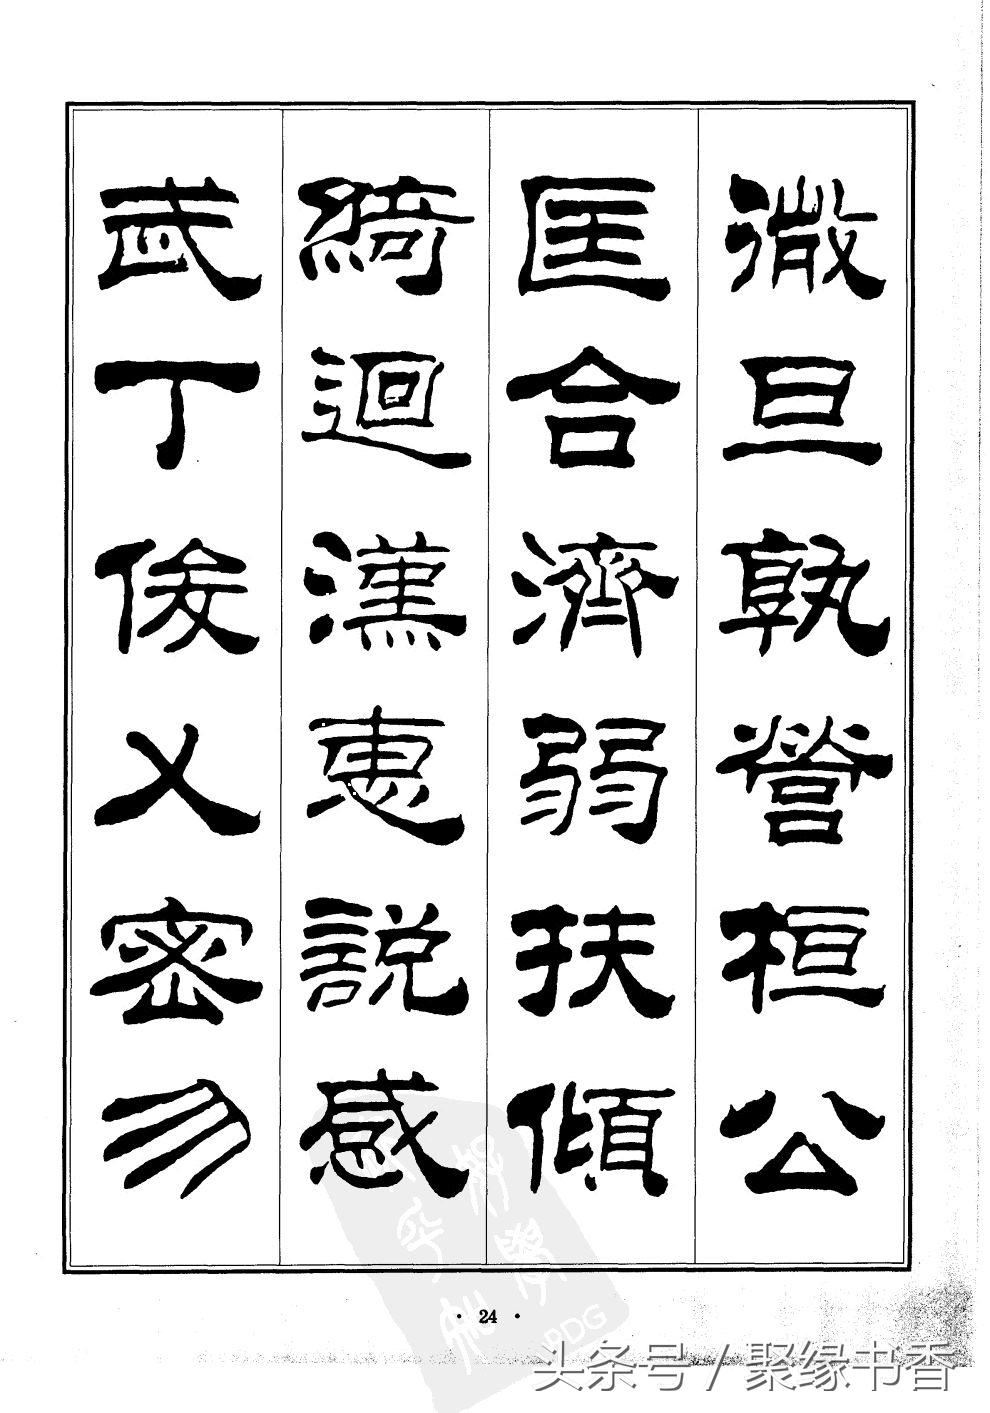 微旦孰營桓公
匡合濟弱扶傾
綺迴漢惠說感
武丁俊乂密勿
· 24 ·
头条号 / 聚缘书香